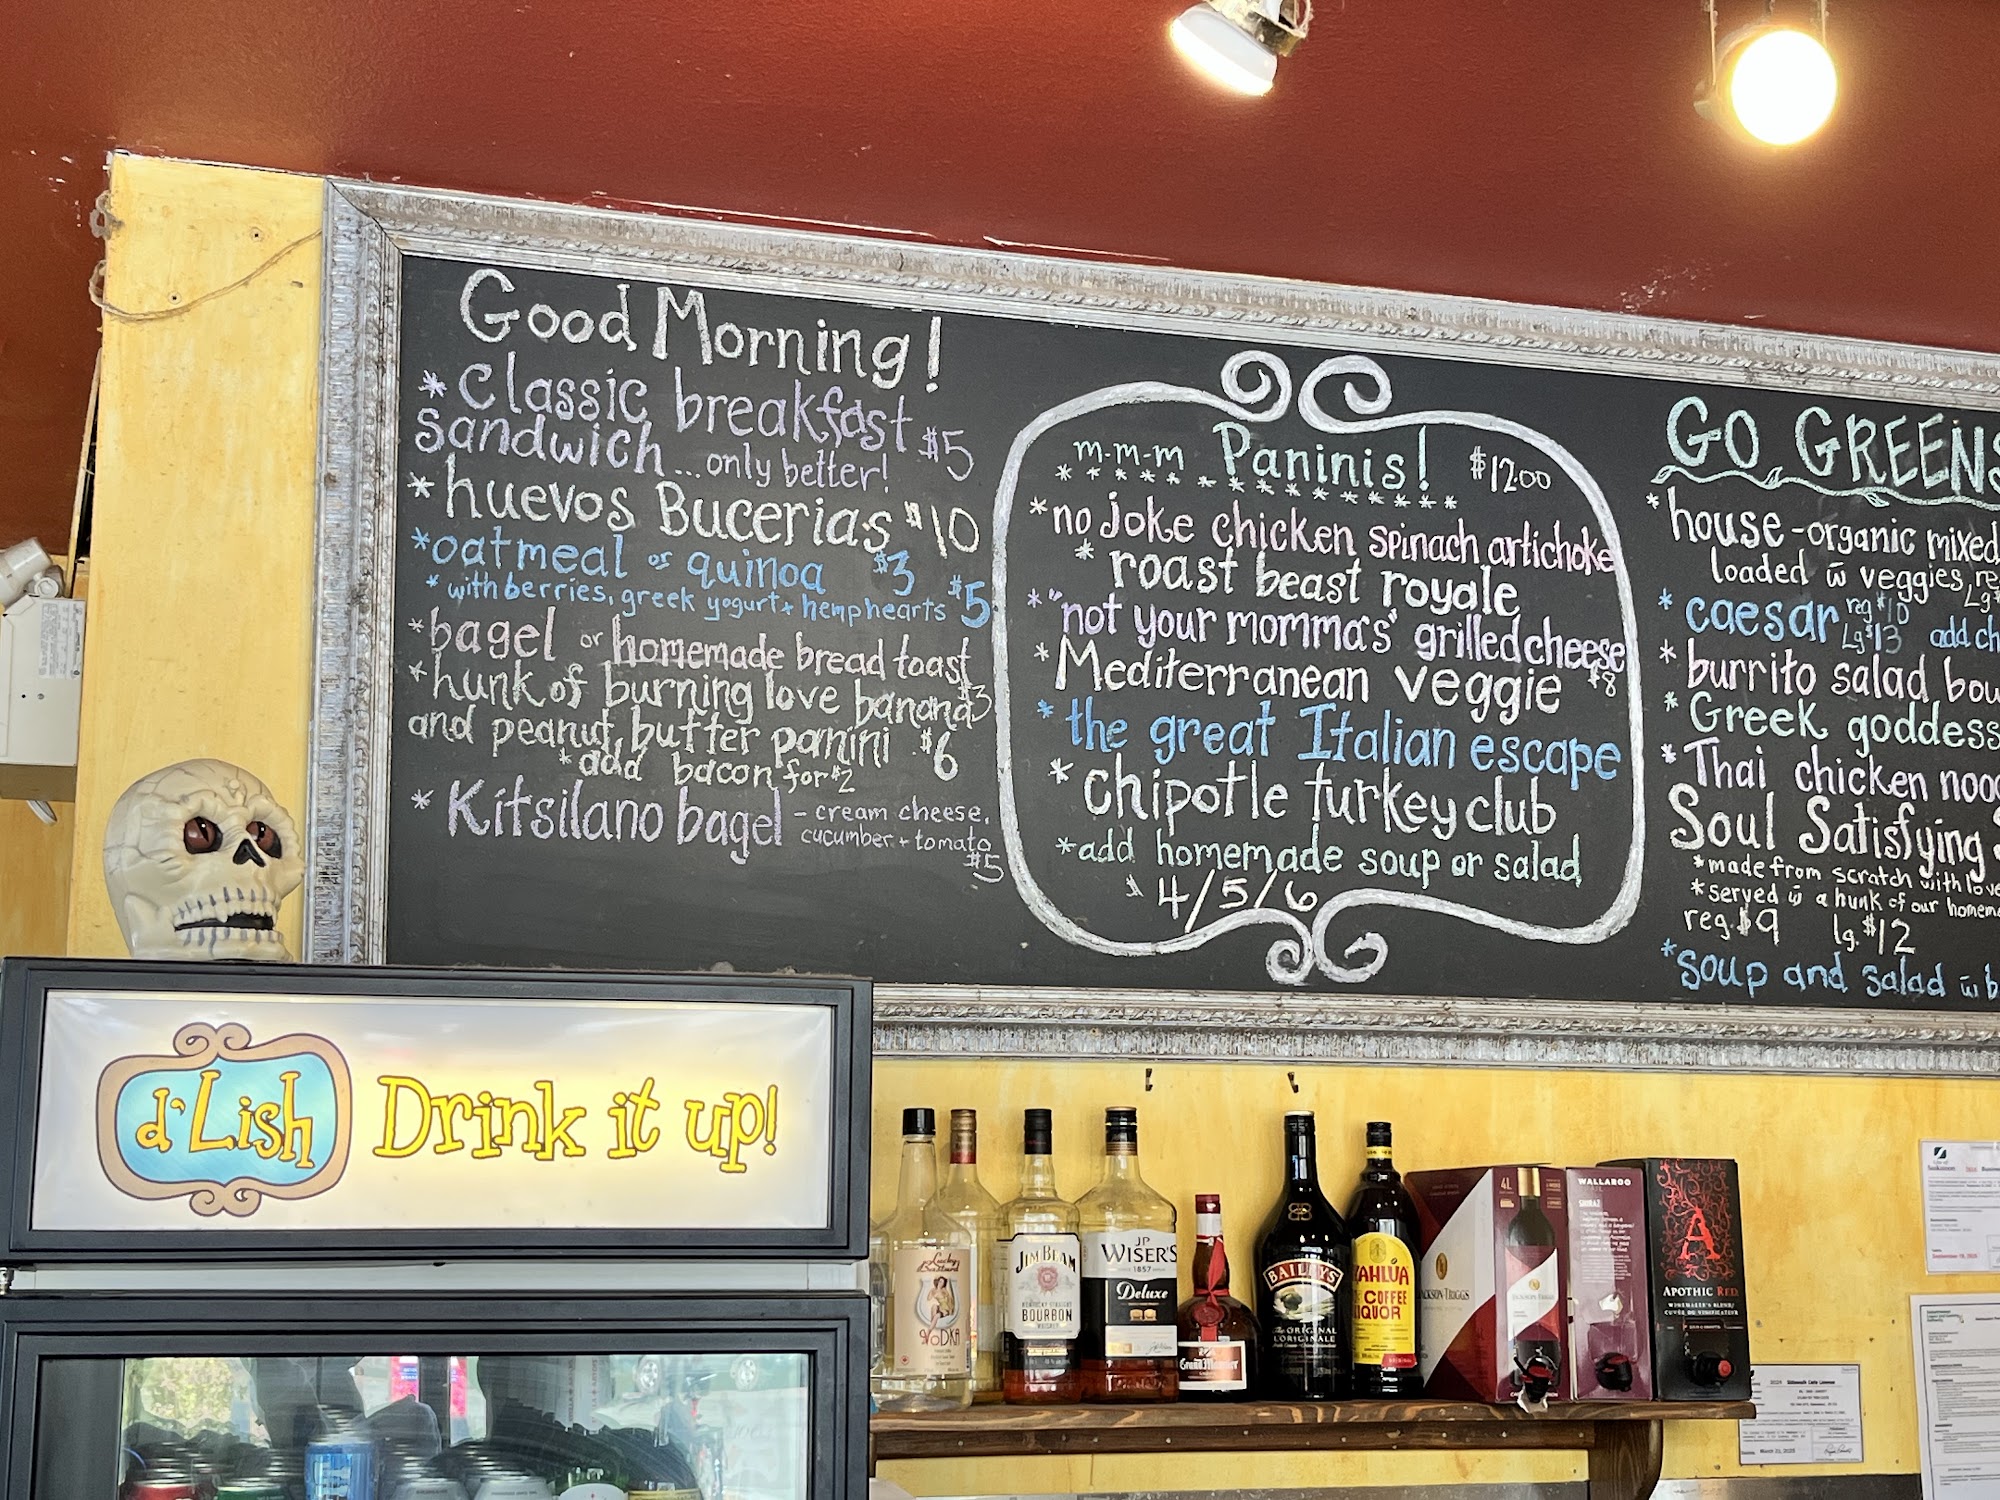 Good Morning!
* classic breakfast
sandwich ... only better! $5
* huevos Bucerias $10
* oatmeal or quinoa $3
* with berries, greek yogurt + hemp hearts $5
* bagel or homemade bread toast
$3
* hunk of burning love banana
and peanut butter panini $6
* add bacon for $2
* Kitsilano bagel - cream cheese,
cucumber + tomato
$5
m-m-m Paninis! $12.00
* no joke chicken spinach artichoke
* roast beast royale
* "not your momma's" grilled cheese
$8
* Mediterranean veggie
* the great Italian escape
* chipotle turkey club
* add homemade soup or salad
$4/5/6
GO GREENS
* house - organic mixed
loaded w veggies, re
Lg $
* caesar reg $10
Lg $13 add ch
* burrito salad bow
* Greek goddess
* Thai chicken noo
Soul Satisfying
* made from scratch with love
* served w a hunk of our homema
reg. $9 lg. $12
* soup and salad w b
d'Lish Drink it up!
Lucky
Bastard
VODKA
JIM BEAM
KENTUCKY STRAIGHT
BOURBON
WHISKEY
JP
WISER'S
SINCE 1857
Deluxe
Grand Marnier
BAILEYS
The ORIGINAL
L'ORIGINALE
KAHLÚA
COFFEE
LIQUOR
4L
JACKSON-TRIGGS
WALLAROO
TRAIL
SHIRAZ
A
APOTHIC RED
WINEMAKER'S BLEND
CUVÉE DU VINIFICATEUR
Saskatoon
September 19, 2025
March 21, 2025